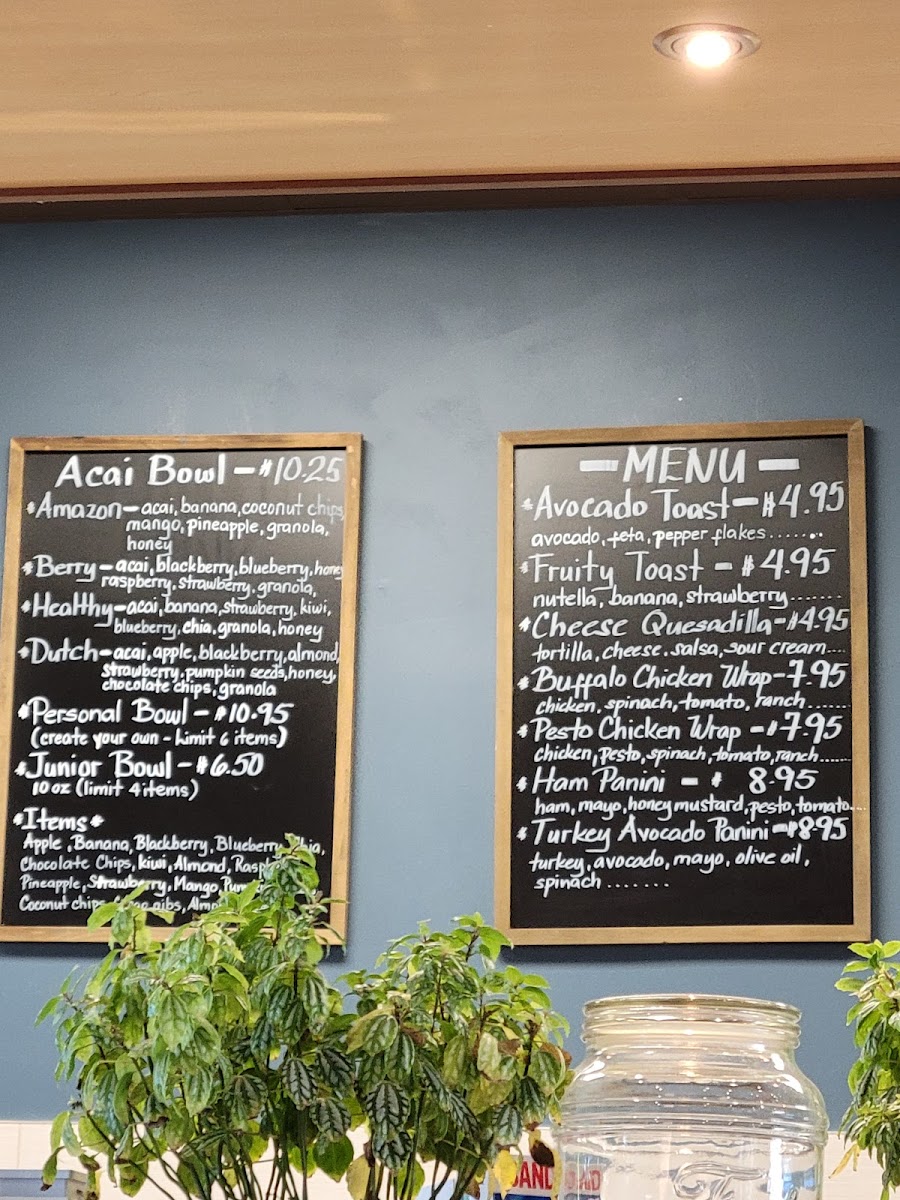 Acai Bowl - $10.25
*Amazon - acai, banana, coconut chips,
mango, pineapple, granola,
honey
*Berry - acai, blackberry, blueberry, honey
raspberry, strawberry, granola,
*Healthy - acai, banana, strawberry, kiwi,
blueberry, chia, granola, honey
*Dutch - acai, apple, blackberry, almond,
strawberry, pumpkin seeds, honey,
chocolate chips, granola
*Personal Bowl - $10.95
(create your own - limit 6 items)
*Junior Bowl - $6.50
10 oz (limit 4 items)
*Items*
Apple, Banana, Blackberry, Blueberry,
Chocolate Chips, kiwi, Almond,
Pineapple, Strawberry, Mango,
Coconut chips
- MENU -
*Avocado Toast - $4.95
avocado, feta, pepper flakes.......
*Fruity Toast - $4.95
nutella, banana, strawberry.......
*Cheese Quesadilla - $4.95
tortilla, cheese, salsa, sour cream....
*Buffalo Chicken Wrap - 7.95
chicken, spinach, tomato, ranch.......
*Pesto Chicken Wrap - $7.95
chicken, pesto, spinach, tomato, ranch......
*Ham Panini - $ 8.95
ham, mayo, honey mustard, pesto, tomato....
*Turkey Avocado Panini - $8.95
turkey, avocado, mayo, olive oil,
spinach.......